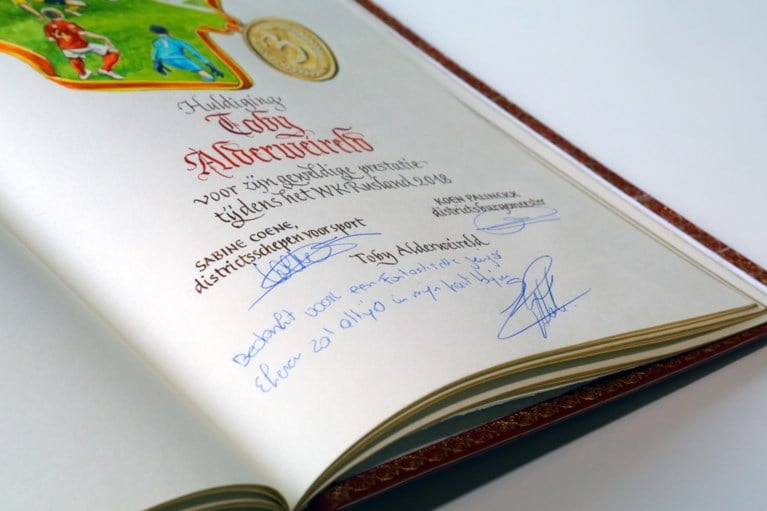 3
Huldiging
Toby
Alderweireld
voor zijn geweldige prestatie
tijdens het WK Rusland 2018
SABINE COENE,
districtsschepen voor sport
KOEN PALINCKX
districtsburgemeester
Toby Alderweireld
Bedankt voor een fantastische
Ekeren zal altijd in mijn hart